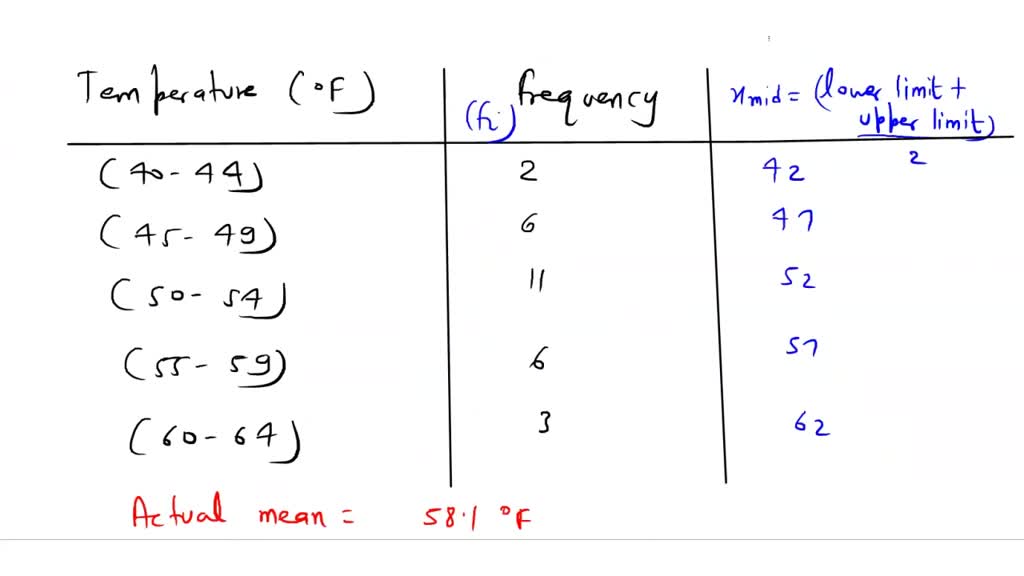 Temperature (°F) frequency (fi) xmid = (lower limit +
upper limit)
2
(40 - 44) 2 42
(45 - 49) 6 47
(50 - 54) 11 52
(55 - 59) 6 57
(60 - 64) 3 62
Actual mean = 58.1 °F